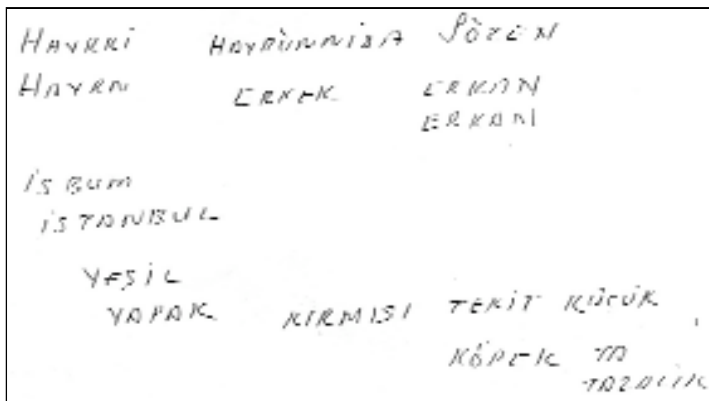 HAYRRİ HAYRÜNNİSA SÖZEN
HAYRN ERKEK ERKAN
ERKAN
İS BUM
İSTANBUL
YEŞİL
YAPAK KIRMISI TEKİT KÜÇÜK
KÖPEK TA